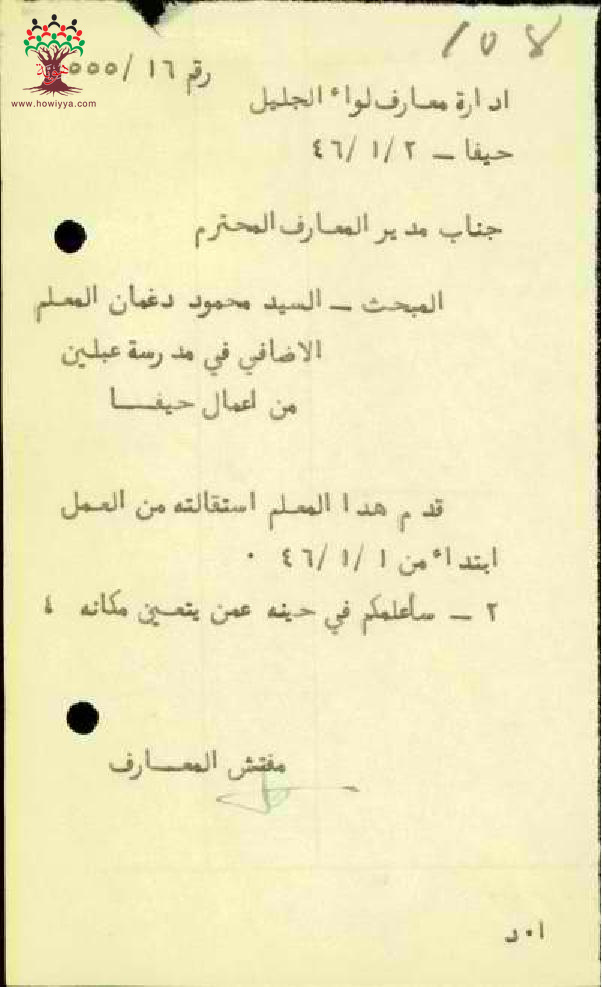 ١٥٨
www.howiyya.com
رقم ١٦ /٥٥٥
ادارة معارف لواء الجليل
حيفا – ٤٦/١/٢
جناب مدير المعارف المحترم
المبحث – السيد محمود دغمان المعلم
الاضافي في مدرسة عبلين
من اعمال حيفـــا
قدم هدا المعلم استقالته من العمل
ابتداء من ٤٦/١/١ ٠
٢ – سأعلمكم في حينه عمن يتعين مكانه ،
مفتش المعـــارف
ا٠د